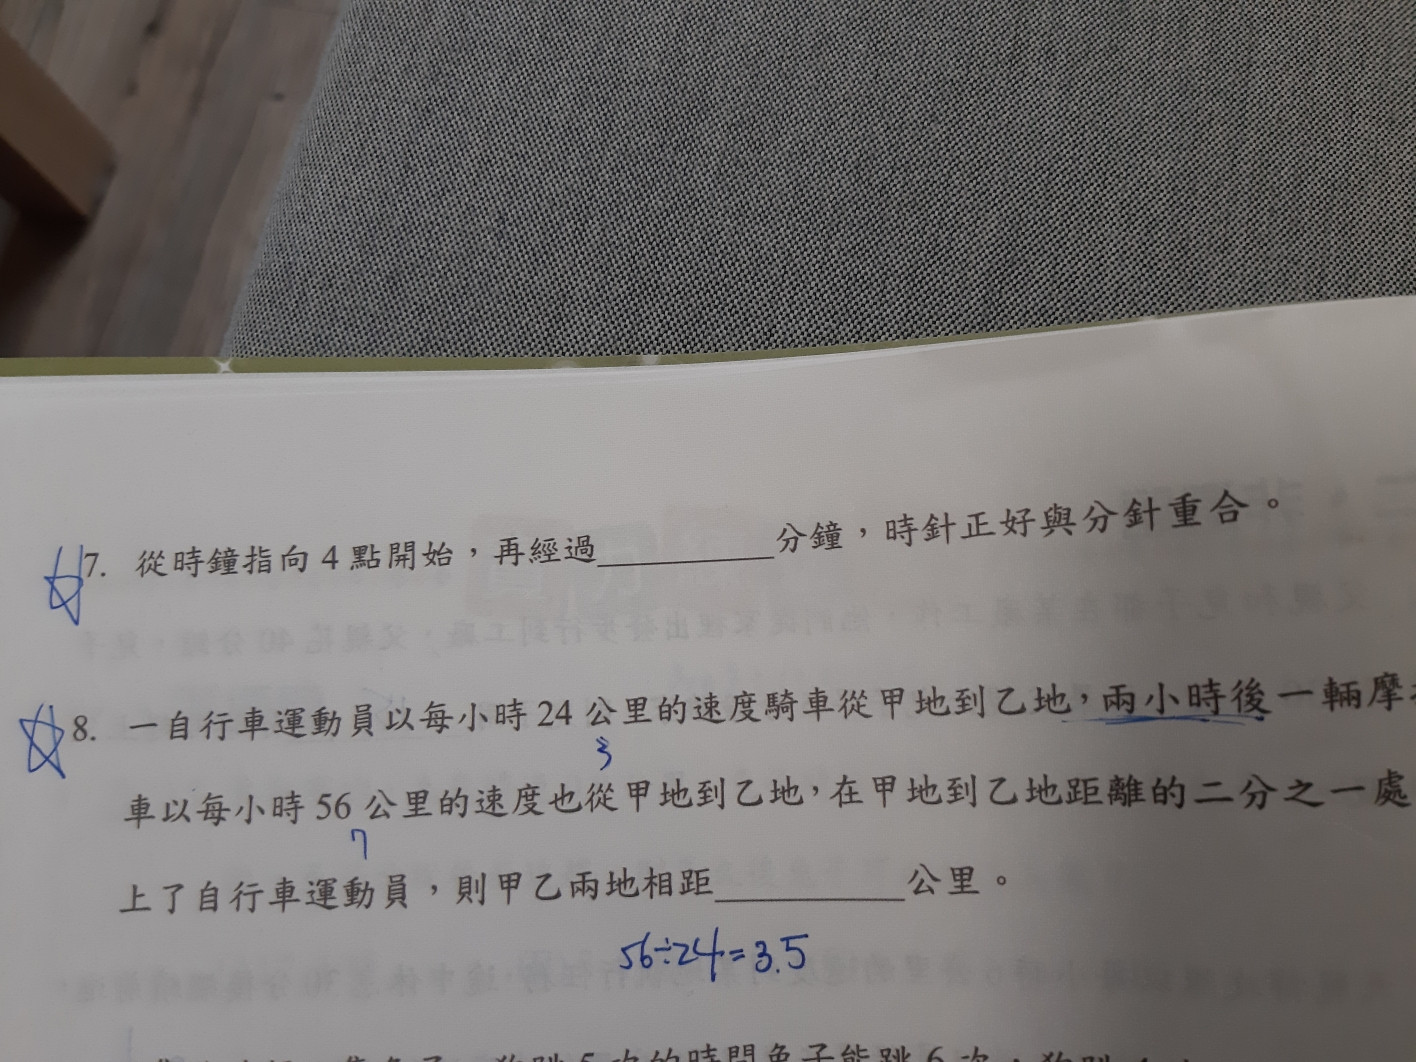 7. 從時鐘指向 4 點開始，再經過__________分鐘，時針正好與分針重合。
8. 一自行車運動員以每小時 24 公里的速度騎車從甲地到乙地，兩小時後一輛摩
3
車以每小時 56 公里的速度也從甲地到乙地，在甲地到乙地距離的二分之一處
7
上了自行車運動員，則甲乙兩地相距__________公里。
56÷24=3.5